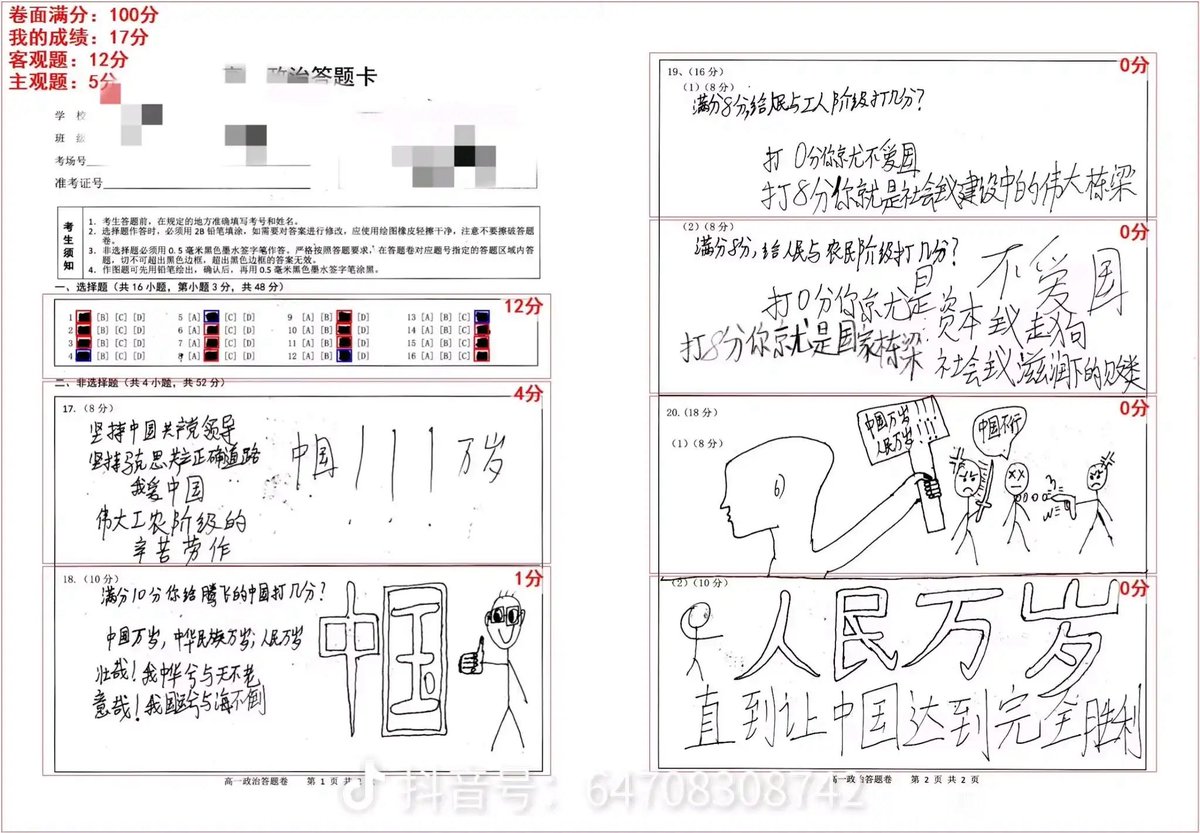 卷面满分：100分
我的成绩：17分
客观题：12分
主观题：5分
政治答题卡
学 校
班 级
考场号
准考证号
考生须知
1. 考生答题前，在规定的地方准确填写考号和姓名。
2. 选择题作答时，必须用2B铅笔填涂，如需要对答案进行修改，应使用绘图橡皮轻擦干净，注意不要擦破答题
卷。
3. 非选择题必须用0.5毫米黑色墨水签字笔作答。严格按照答题要求，在答题卷对应题号指定的答题区域内答
题，切不可超出黑色边框，超出黑色边框的答案无效。
4. 作图题可先用铅笔绘出，确认后，再用0.5毫米黑色墨水签字笔涂黑。
一、选择题（共16小题，第小题3分，共48分）
12分
1 [B] [C] [D] 5 [A] [C] [D] 9 [A] [B] [D] 13 [A] [B] [C]
2 [B] [C] [D] 6 [A] [C] [D] 10 [A] [B] [D] 14 [A] [B] [C]
3 [B] [C] [D] 7 [A] [C] [D] 11 [A] [B] [D] 15 [A] [B] [C]
4 [B] [C] [D] 8 [A] [C] [D] 12 [A] [B] [D] 16 [A] [B] [C]
二、非选择题（共4小题，共52分）
4分
17.（8分）
坚持中国共产党领导
坚持马克思主义正确道路
我爱中国
伟大工农阶级的
辛苦劳作
中国!!!万岁
1分
18.（10分）
满分10分你给腾飞的中国打几分?
中国万岁，中华民族万岁，人民万岁
壮哉！我中华兮与天不老
意哉！我国运兮与海不倒
中国
高一政治答题卷 第 1 页 共 2 页
0分
19、（16分）
（1）（8分）
满分8分，给人民与工人阶级打几分?
打0分你就不爱国
打8分你就是社会主义建设中的伟大栋梁
0分
（2）（8分）
满分8分，给人民与农民阶级打几分?
不爱国
打0分你就是资本主义走狗
打8分你就是国家栋梁
社会主义滋润下的败类
0分
20.（18分）
（1）（8分）
中国万岁!!!
人民万岁!!!
中国不行
0分
（2）（10分）
人民万岁
直到让中国达到完全胜利
高一政治答题卷 第 2 页 共 2 页
抖音号：64708308742